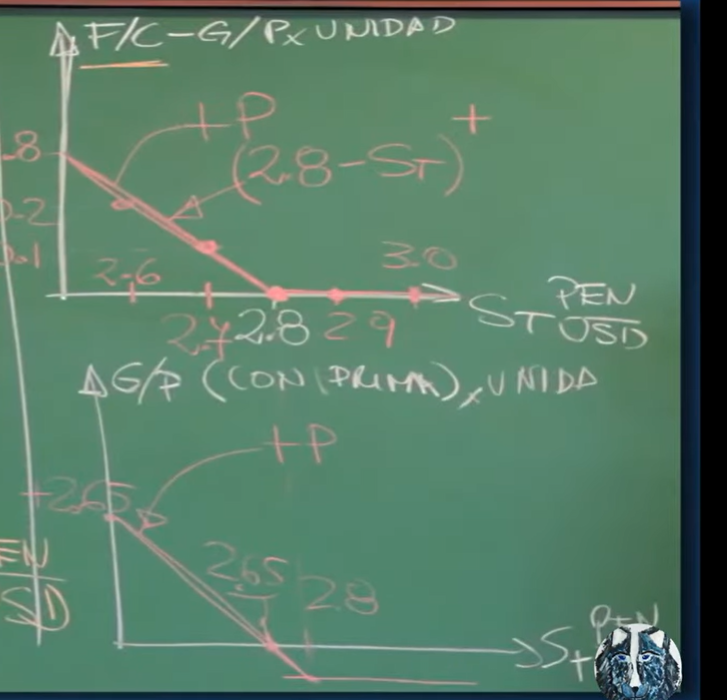 F/C-G/PxUNIDAD
+P
+
(2.8-ST)
.8
0.2
0.1
2.6
3.0
2.7
2.8
2.9
ST PEN
USD
G/P (CON/PRIMA)xUNIDA
+P
+2.65
EN
SD
2.65
2.8
St PEN